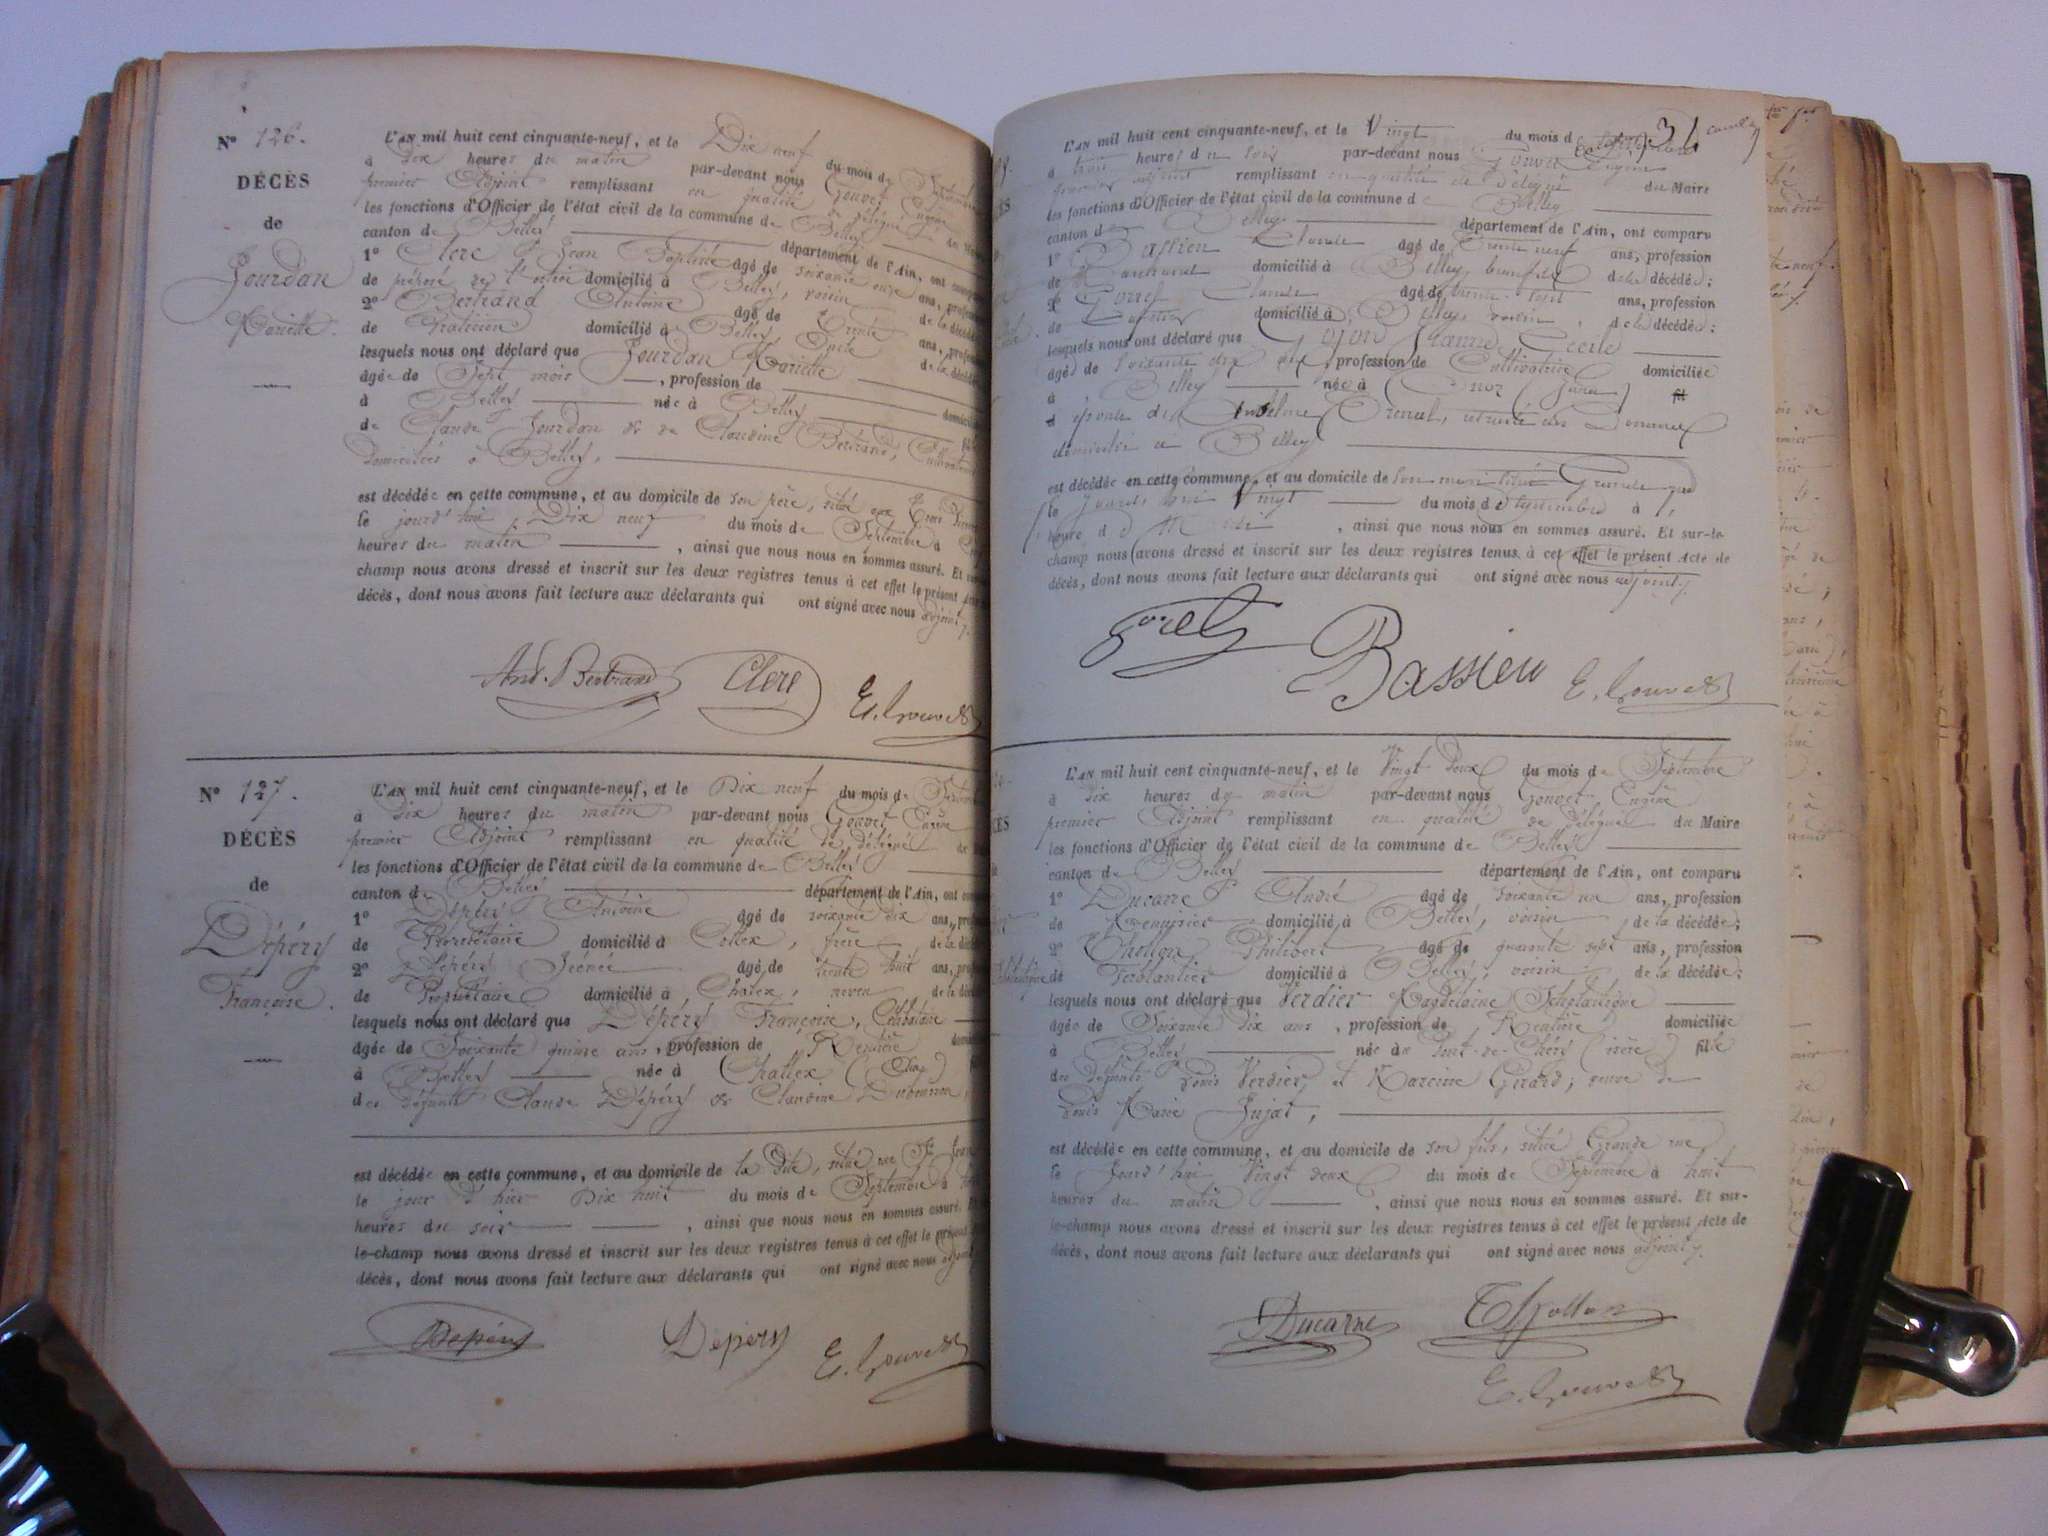 N° 126.
DÉCÈS
de
Jourdan
Mariette.
L'AN mil huit cent cinquante-neuf, et le Dix neuf du mois de Septembre
à Dix heures du matin par-devant nous Gouvet Eugène
premier Adjoint remplissant en qualité de délégué du
les fonctions d'Officier de l'état civil de la commune de Belley
canton de Belley département de l'Ain, ont comparu
1° Clerc Jean Baptiste âgé de soixante onze ans, profession
de préposé de l'octroi domicilié à Belley, voisin de la décédée
2° Bertrand Antoine âgé de trente ans, profession
de Praticien domicilié à Belley, de la décédée
lesquels nous ont déclaré que Jourdan Mariette
âgée de Sept mois, profession de domiciliée
à Belley née à Belley fille
de Claude Jourdan et de Claudine Bertrand, Cultivateurs
domiciliés à Belley,
est décédée en cette commune, et au domicile de son père, situé aux Trois
le jourd'hui Dix neuf du mois de Septembre à
heures du matin, ainsi que nous nous en sommes assuré. Et sur-le-
champ nous avons dressé et inscrit sur les deux registres tenus à cet effet le présent Acte de
décès, dont nous avons fait lecture aux déclarants qui ont signé avec nous adjoint.
Ant. Bertrand Clerc E. Gouvet
N° 127.
DÉCÈS
de
Dépéry
Françoise.
L'AN mil huit cent cinquante-neuf, et le Dix neuf du mois de Septembre
à Dix heures du matin par-devant nous Gouvet Eugène
premier Adjoint remplissant en qualité de délégué du
les fonctions d'Officier de l'état civil de la commune de Belley
canton de Belley département de l'Ain, ont comparu
1° Dépéry Antoine âgé de soixante dix ans, profession
de Propriétaire domicilié à Collex, frère de la décédée
2° Dépéry Irénée âgé de trente huit ans, profession
de Propriétaire domicilié à Challex, neveu de la décédée
lesquels nous ont déclaré que Dépéry Françoise, Célibataire
âgée de Soixante quinze ans, profession de Rentière domiciliée
à Belley née à Challex (Ain)
des défunts Claude Dépéry et Claudine
est décédée en cette commune, et au domicile de la dite, situé rue St Jean
le jour d'hier Dix huit du mois de Septembre à
heures du soir, ainsi que nous nous en sommes assuré. Et sur-
le-champ nous avons dressé et inscrit sur les deux registres tenus à cet effet le présent
décès, dont nous avons fait lecture aux déclarants qui ont signé avec nous adjoint
Depéry Depery E. Gouvet
31
L'AN mil huit cent cinquante-neuf, et le Vingt du mois d
à trois heures du soir par-devant nous Gouvet Eugène
premier adjoint remplissant en qualité de Délégué du Maire
les fonctions d'Officier de l'état civil de la commune de Belley
canton de Belley département de l'Ain, ont comparu
1° Bassieu Claude âgé de trente neuf ans, profession
de domicilié à Belley, de la décédée;
2° Gorrel Claude âgé de trente sept ans, profession
de domicilié à Belley, voisin, de la décédée;
lesquels nous ont déclaré que Goyon Jeanne
âgée de soixante dix, profession de Cultivatrice domiciliée
à Belley née à (Jura)
épouse de Anselme
domiciliés à Belley
est décédée en cette commune, et au domicile de son mari situé Grande rue
le jourd'hui Vingt du mois de Septembre à 1,
heure de, ainsi que nous nous en sommes assuré. Et sur-le-
champ nous avons dressé et inscrit sur les deux registres tenus à cet effet le présent Acte de
décès, dont nous avons fait lecture aux déclarants qui ont signé avec nous adjoint.
Gorrel Bassieu E. Gouvet
L'AN mil huit cent cinquante-neuf, et le Vingt deux du mois de Septembre
à dix heures du matin par-devant nous Gouvet Eugène
premier Adjoint remplissant en qualité de délégué du Maire
les fonctions d'Officier de l'état civil de la commune de Belley
canton de Belley département de l'Ain, ont comparu
1° Ducarre André âgé de soixante un ans, profession
de Menuisier domicilié à Belley, voisin de la décédée;
2° Thollon Philibert âgé de quarante sept ans, profession
de Ferblantier domicilié à Belley, voisin, de la décédée;
lesquels nous ont déclaré que Verdier Magdelaine Scholastique
âgée de Soixante dix ans, profession de Rentière domiciliée
à Belley née au Pont-de-Chéry (isère) fille
des défunts Louis Verdier, et Marcine Girard; veuve de
Louis Marie Jujat,
est décédée en cette commune, et au domicile de son fils, situé Grande rue
le Jourd'hui Vingt deux du mois de Septembre à huit
heures du matin, ainsi que nous nous en sommes assuré. Et sur-
le-champ nous avons dressé et inscrit sur les deux registres tenus à cet effet le présent Acte de
décès, dont nous avons fait lecture aux déclarants qui ont signé avec nous adjoint.
Ducarre Thollon
E. Gouvet